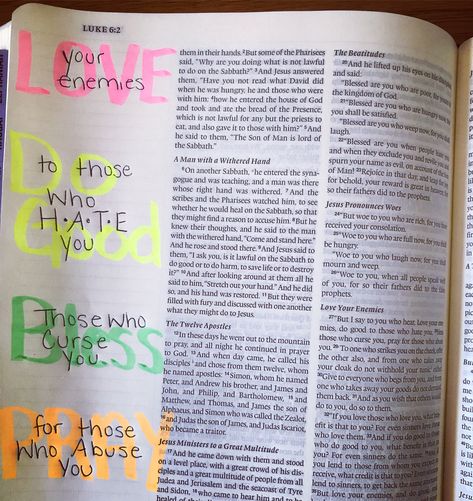 LUKE 6:2
LOVE
your
enemies
Do
Good
to those
who
H·A·T·E
you
Bless
Those who
Curse
you
PRAY
for those
who Abuse
You
them in their hands. 2But some of the Pharisees
said, "Why are you doing what is not lawful
to do on the Sabbath?" 3And Jesus answered
them, "Have you not read what David did
when he was hungry, he and those who were
with him: 4how he entered the house of God
and took and ate the bread of the Presence,
which is not lawful for any but the priests to
eat, and also gave it to those with him?" 5And
he said to them, "The Son of Man is lord of
the Sabbath."
A Man with a Withered Hand
6On another Sabbath, he entered the syna-
gogue and was teaching, and a man was there
whose right hand was withered. 7And the
scribes and the Pharisees watched him, to see
whether he would heal on the Sabbath, so that
they might find a reason to accuse him. 8But he
knew their thoughts, and he said to the man
with the withered hand, "Come and stand here."
And he rose and stood there. 9And Jesus said to
them, "I ask you, is it lawful on the Sabbath to
do good or to do harm, to save life or to destroy
it?" 10And after looking around at them all he
said to him, "Stretch out your hand." And he did
so, and his hand was restored. 11But they were
filled with fury and discussed with one another
what they might do to Jesus.
The Twelve Apostles
12In these days he went out to the mountain
to pray, and all night he continued in prayer
to God. 13And when day came, he called his
disciples and chose from them twelve, whom
he named apostles: 14Simon, whom he named
Peter, and Andrew his brother, and James and
John, and Philip, and Bartholomew, 15and
Matthew, and Thomas, and James the son of
Alphaeus, and Simon who was called the Zealot,
16and Judas the son of James, and Judas Iscariot,
who became a traitor.
Jesus Ministers to a Great Multitude
17And he came down with them and stood
on a level place, with a great crowd of his dis-
ciples and a great multitude of people from all
Judea and Jerusalem and the seacoast of Tyre
and Sidon, 18who came to hear him and to be
The Beatitudes
20And he lifted up his eyes on his disciples,
and said:
"Blessed are you who are poor, for yours is
the kingdom of God.
21"Blessed are you who are hungry now, for
you shall be satisfied.
"Blessed are you who weep now, for you shall
laugh.
22"Blessed are you when people hate you
and when they exclude you and revile you and
spurn your name as evil, on account of the Son
of Man! 23Rejoice in that day, and leap for joy,
for behold, your reward is great in heaven; for
so their fathers did to the prophets.
Jesus Pronounces Woes
24"But woe to you who are rich, for you have
received your consolation.
25"Woe to you who are full now, for you shall
be hungry.
"Woe to you who laugh now, for you shall
mourn and weep.
26"Woe to you, when all people speak well
of you, for so their fathers did to the false
prophets.
Love Your Enemies
27"But I say to you who hear, Love your ene-
mies, do good to those who hate you, 28bless
those who curse you, pray for those who abuse
you. 29To one who strikes you on the cheek, offer
the other also, and from one who takes away
your cloak do not withhold your tunic either.
30Give to everyone who begs from you, and from
one who takes away your goods do not demand
them back. 31And as you wish that others would
do to you, do so to them.
32"If you love those who love you, what bene-
fit is that to you? For even sinners love those
who love them. 33And if you do good to those
who do good to you, what benefit is that to
you? For even sinners do the same. 34And if
you lend to those from whom you expect to
receive, what credit is that to you? Even sinners
lend to sinners, to get back the same amount.
35But love your enemies, and do good,